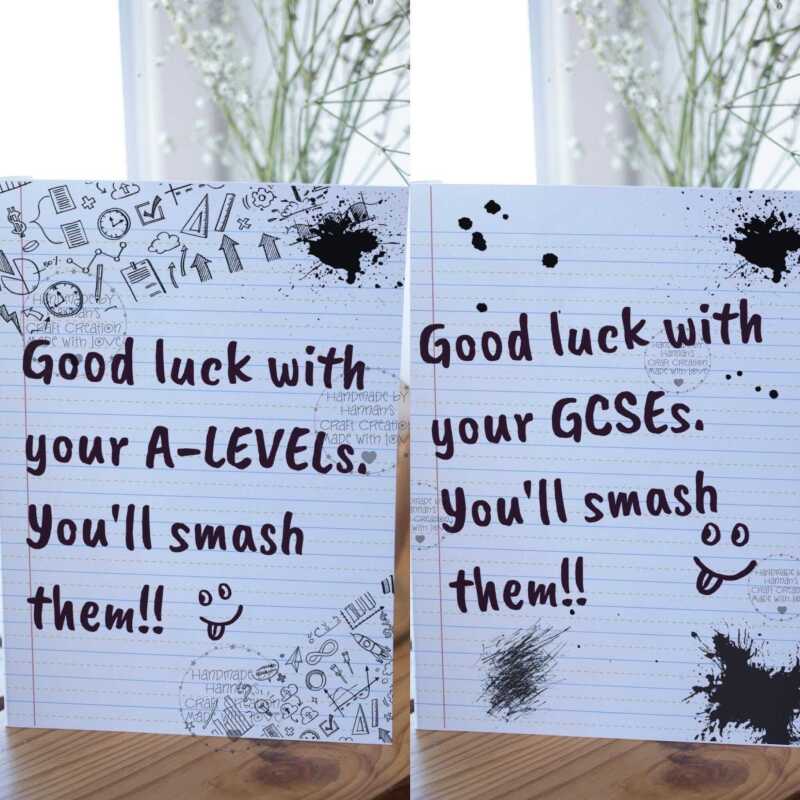 Good luck with
your A-LEVELS.
You'll smash
them!!
Handmade by
Hannah's
Craft Creation
Made with Love
Handmade by
Hannah's
Craft Creation
Made with Love
Handmade by
Hannah's
Made
Good luck with
your GCSEs.
You'll smash
them!!
Handmade by
Hannah's
Craft Creation
Made with Love
Handmade by
Hannah's
Craft Creation
Made with Love
Handmade by
Hannah's
Craft Creation
Made with Love